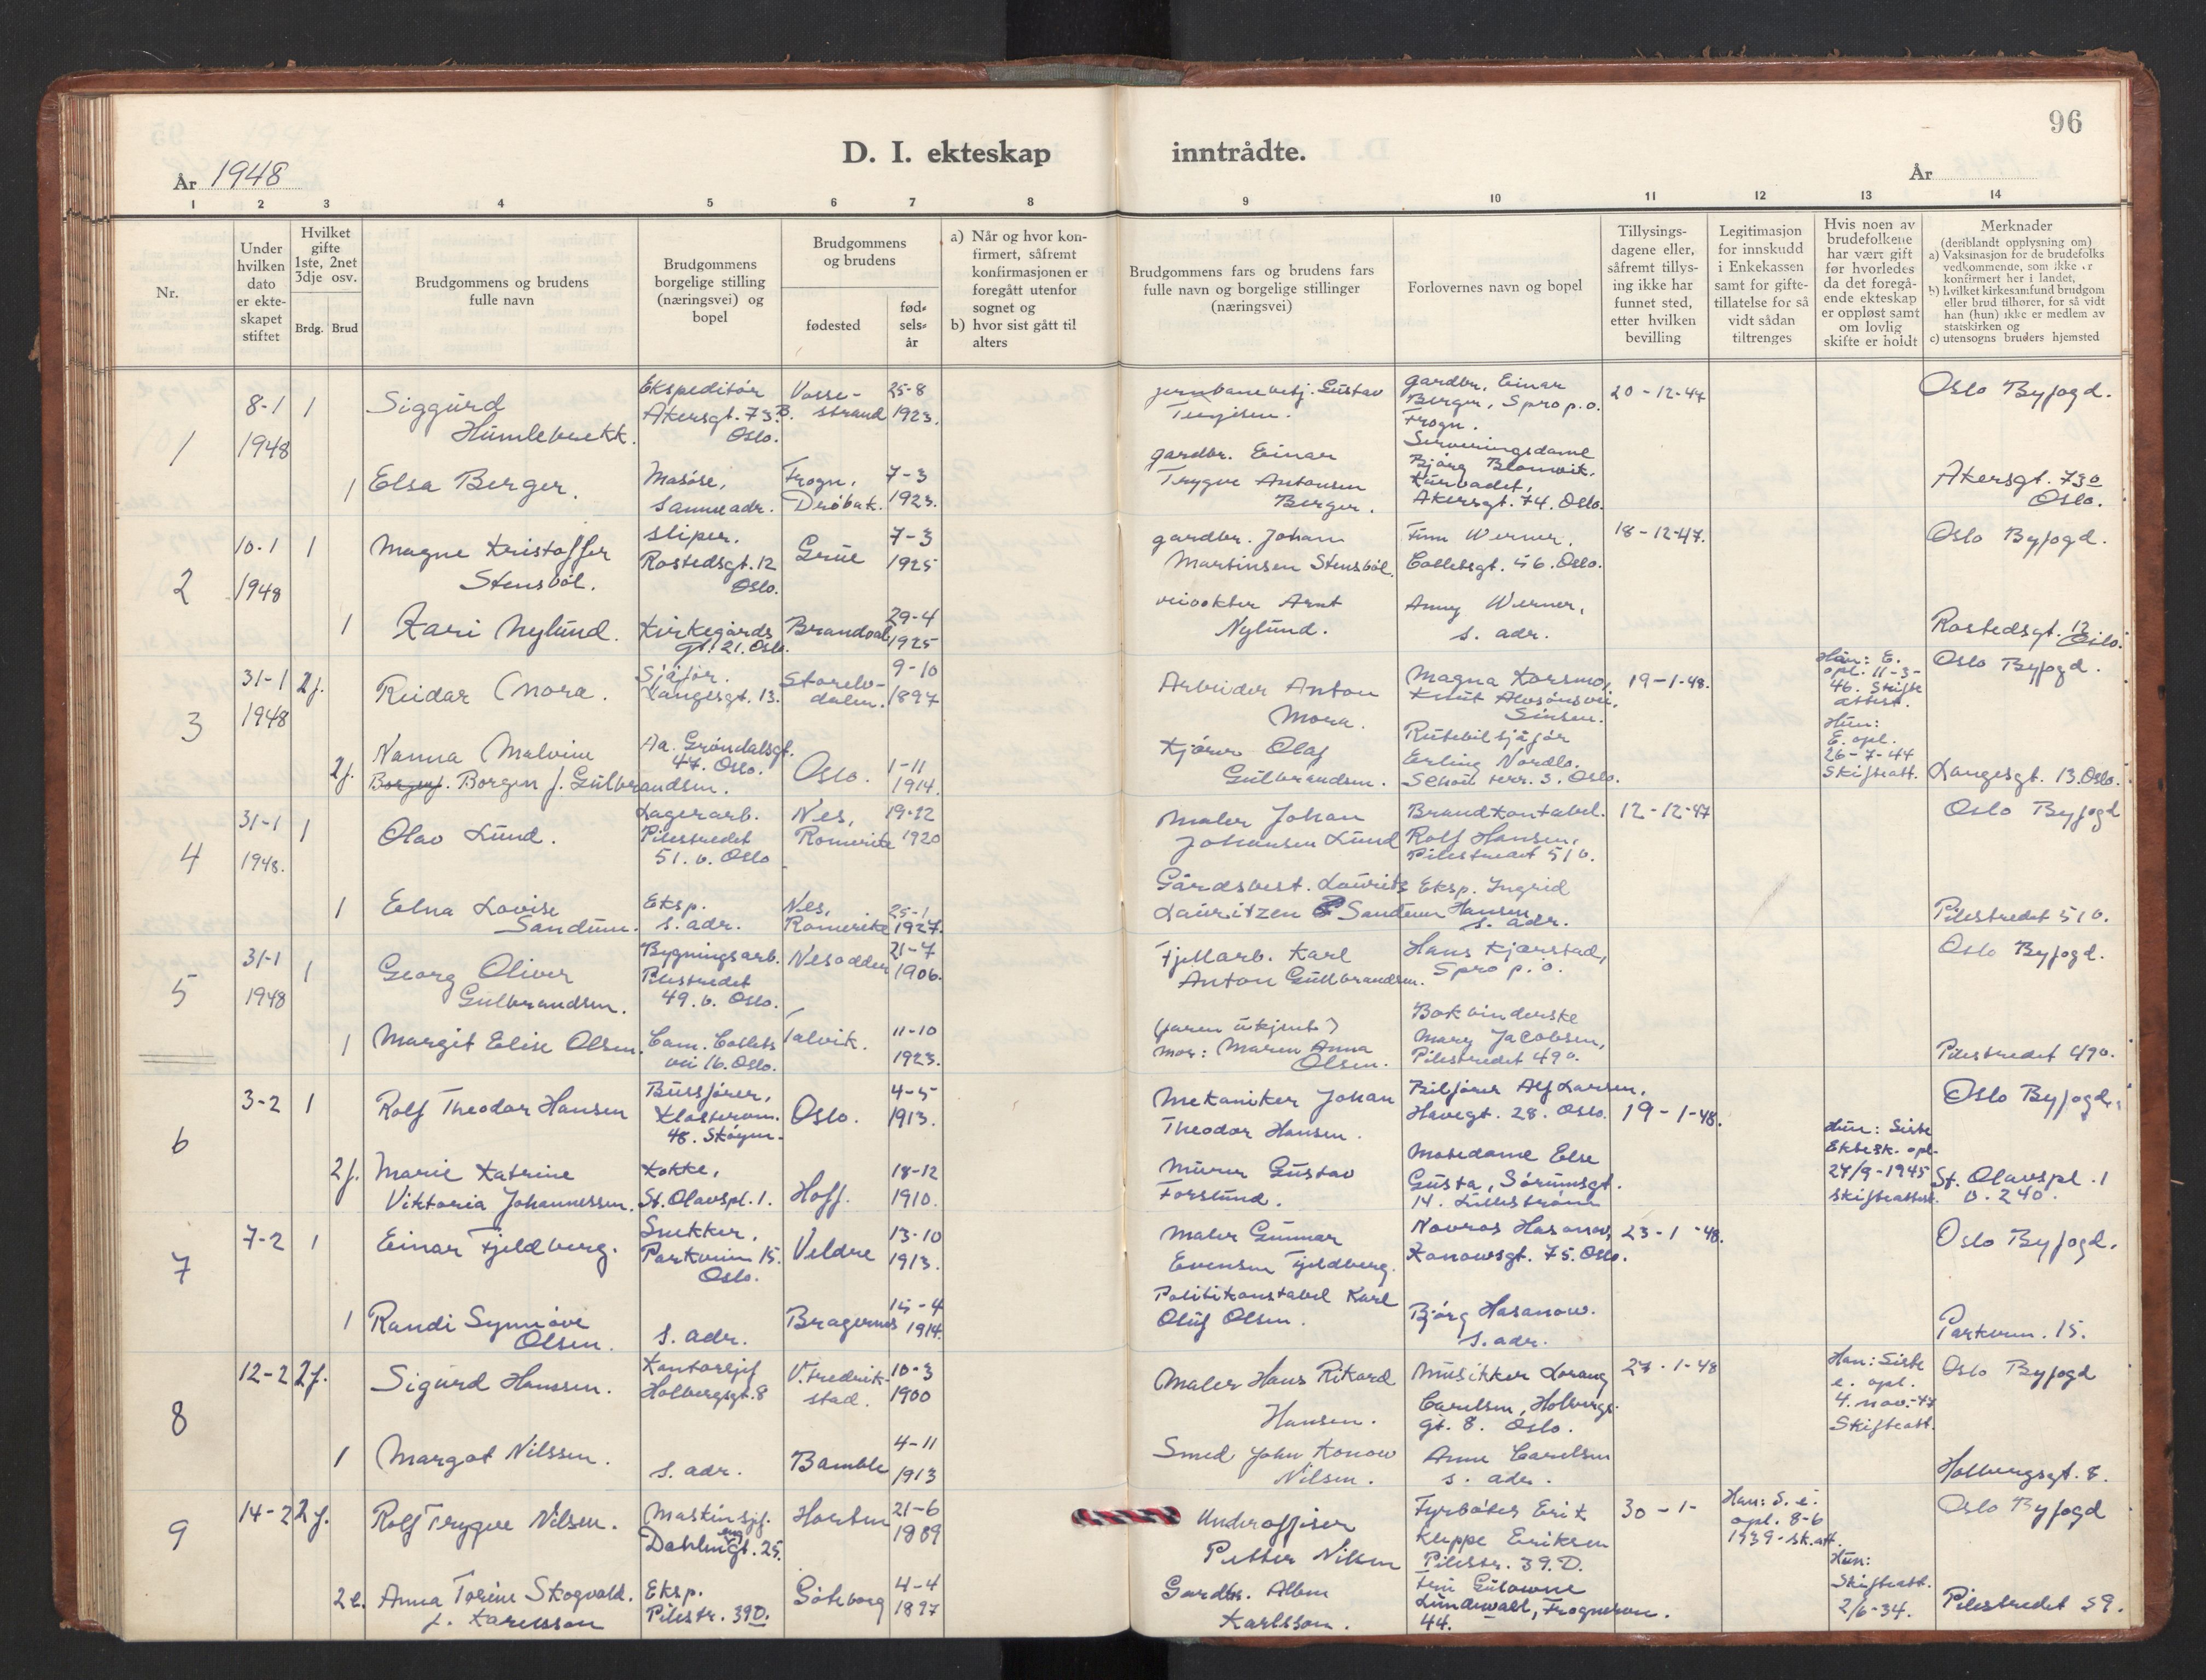 96
D. I. ekteskap
inntrådte.
År 1948
År
1 2 3 4 5 6 7 8 9 10 11 12 13 14
Nr.
Under
hvilken
dato
er ekte-
skapet
stiftet
Hvilket
gifte
1ste, 2net
3dje osv.
Brdg. Brud
Brudgommens og brudens
fulle navn
Brudgommens
borgelige stilling
(næringsvei) og
bopel
Brudgommens
og brudens
fødested
fød-
sels-
år
a) Når og hvor kon-
firmert, såfremt
konfirmasjonen er
foregått utenfor
sognet og
b) hvor sist gått til
alters
Brudgommens fars og brudens fars
fulle navn og borgelige stillinger
(næringsvei)
Forlovernes navn og bopel
Tillysings-
dagene eller,
såfremt tillys-
ing ikke har
funnet sted,
etter hvilken
bevilling
Legitimasjon
for innskudd
i Enkekassen
samt for gifte-
tillatelse for så
vidt sådan
tiltrenges
Hvis noen av
brudefolkene
har vært gift
før hvorledes
da det foregå-
ende ekteskap
er oppløst samt
om lovlig
skifte er holdt
Merknader
(deriblandt opplysning om)
a) Vaksinasjon for de brudefolks
vedkommende, som ikke er
konfirmert her i landet,
b) hvilket kirkesamfund brudgom
eller brud tilhører, for så vidt
han (hun) ikke er medlem av
statskirken og
c) utensogns bruders hjemsted
1
8-1
1948
1
Siggurd
Humlebrekk.
Ekspeditør
Akersgt. 73 B.
Oslo.
Vosse-
strand
25-8
1923.
jernbanebetj. Gustav
gardbr. Einar
Berger, Spro p.o.
Frogn.
20-12-47
Oslo Byfogd.
1
Elsa Berger.
Masøse,
samme adr.
Frogn,
Drøbak.
7-3
1923.
gardbr. Einar
Trygve Antonsen
Berger.
Serveringsdame
Bjørg Blomvik,
Akersgt. 74. Oslo.
Akersgt. 73b
Oslo.
2
10-1
1948
1
Magne Kristoffer
Stensbøl.
sliper.
Rostedsgt. 12
Oslo.
Grue
7-3
1925
gardbr. Johan
Martinsen Stensbøl.
Finn Werner,
Colletsgt. 56. Oslo.
18-12-47.
Oslo Byfogd.
1
Kari Nylund.
Kirkegårds
gt. 21. Oslo.
Brandval
29-4
1925
veivokter Arnt
Nylund.
Anny Werner,
s. adr.
Rostedsgt. 12
Oslo.
3
31-1
1948
2f.
Reidar Mora.
Sjåfør.
Langesgt. 13.
Storelv-
dalen.
9-10
1897
Arbeider Anton
Mora.
Magna Korsmo,
Knut Alvsönsvei,
Sinsen.
19-1-48.
Han: E.
opl. 11-3-
46. Skifte
attest.
Oslo Byfogd.
2f.
Nanna Malvine
Borgen f. Gulbrandsen.
Aa. Grøndalsgt.
47. Oslo.
Oslo.
1-11
1914.
Kjører Olaf
Gulbrandsen.
Rutebilsjåfør
Erling Nordlo.
Schous terr. 3. Oslo.
Hun:
E. opl.
26-7-44
Skifteatt.
Langesgt. 13. Oslo.
4
31-1
1948.
1
Olav Lund.
Lagerarb.
Pilestredet
51. b. Oslo
Nes,
Romerike
19-12
1920
Maler Johan
Johansen Lund
Brandkonstabel.
Rolf Hansen,
Pilestredet 51 b.
12-12-47
Oslo Byfogd
1
Elna Lovise
Sandum.
Eksp.
s. adr.
Nes,
Romerike
25-1
1927.
Gårdsbest. Laurits
Lauritzen Sandum
Eksp. Ingrid
Hansen,
s. adr.
Pilestredet 51 b.
5
31-1
1948
1
Georg Oliver
Gulbrandsen.
Bygningsarb.
Pilestredet
49. b. Oslo.
Nesodden
21-7
1906.
Fjellarb. Karl
Anton Gulbrandsen.
Hans Kjærstad,
Spro p. o.
Oslo Byfogd.
1
Margit Elise Olsen.
Cam. Collets
vei 16. Oslo.
Talvik.
11-10
1923.
(faren ukjent)
Mor: Maren Anna
Olsen.
Bokbinderske
Mary Jacobsen,
Pilestredet 49 b.
Pilestredet 49 b.
6
3-2
1
Rolf Theodor Hansen
Bussfører,
48. Skøyen.
Oslo.
4-5
1913.
Mekaniker Johan
Theodor Hansen.
Bilfører Alf Larsen,
Havegt. 28. Oslo.
19-1-48.
Oslo Byfogd.
2f.
Marie Katrine
Viktoria Johannessen.
Kokke,
St. Olavspl. 1.
Hoff.
18-12
1910.
Murer Gustav
Forslund.
Mosedame Else
Gusta, Sørumsgt.
14. Lillestrøm
Hun: Siste
Ektesk. opl.
24/9-1945
skifteattest.
St. Olavspl. 1
v. 240.
7
7-2
1
Einar Fjeldberg.
Snekker,
Parkveien 15.
Oslo.
Veldre
13-10
1913.
Maler Gunnar
Evensen Fjeldberg.
Novras Hasanow,
Konowsgt. 75. Oslo.
23-1-48.
Oslo Byfogd.
1
Randi Synnøve
Olsen.
s. adr.
Bragernes
15-4
1914.
Politikonstabel Karl
Oluf Olsen.
Bjørg Hasanow.
s. adr.
Parkvn. 15.
8
12-2
2f.
Sigurd Hanssen.
Kontorsjef
Holbergsgt. 8
V. Fredrik-
stad.
10-3
1900
Maler Hans Rikard
Hansen.
Musikker Lorang
Carelsen, Holbergs-
gt. 8. Oslo.
27-1-48
Han: Siste
e. opl.
4. nov.-47
Skifteatt.
Oslo Byfogd
1
Margot Nilssen.
s. adr.
Bamble
4-11
1913
Smed John Konow
Nilsen.
Anne Carelsen
s. adr.
Holbergsgt. 8.
9
14-2
2f.
Rolf Trygve Nilsen.
Maskinsjf.
Dahlengt. 25.
Horten
21-6
1889
Underoffiser
Petter Nilsen
Fyrbøter Erik
Kleppe Eriksen
Pilestr. 39. D.
30-1-
Han: S. e.
opl. 8-6
1939-sk.att.
Oslo Byfogd
2e.
Anna Torine Skogvold.
f. Karlsson
Eksp.
Pilestr. 39D.
Göteborg
4-4
1897
Gardbr. Albin
Karlsson.
Lundewall, Frognervn.
44.
Hun:
Skifteatt.
2/6-34.
Pilestredet 59.